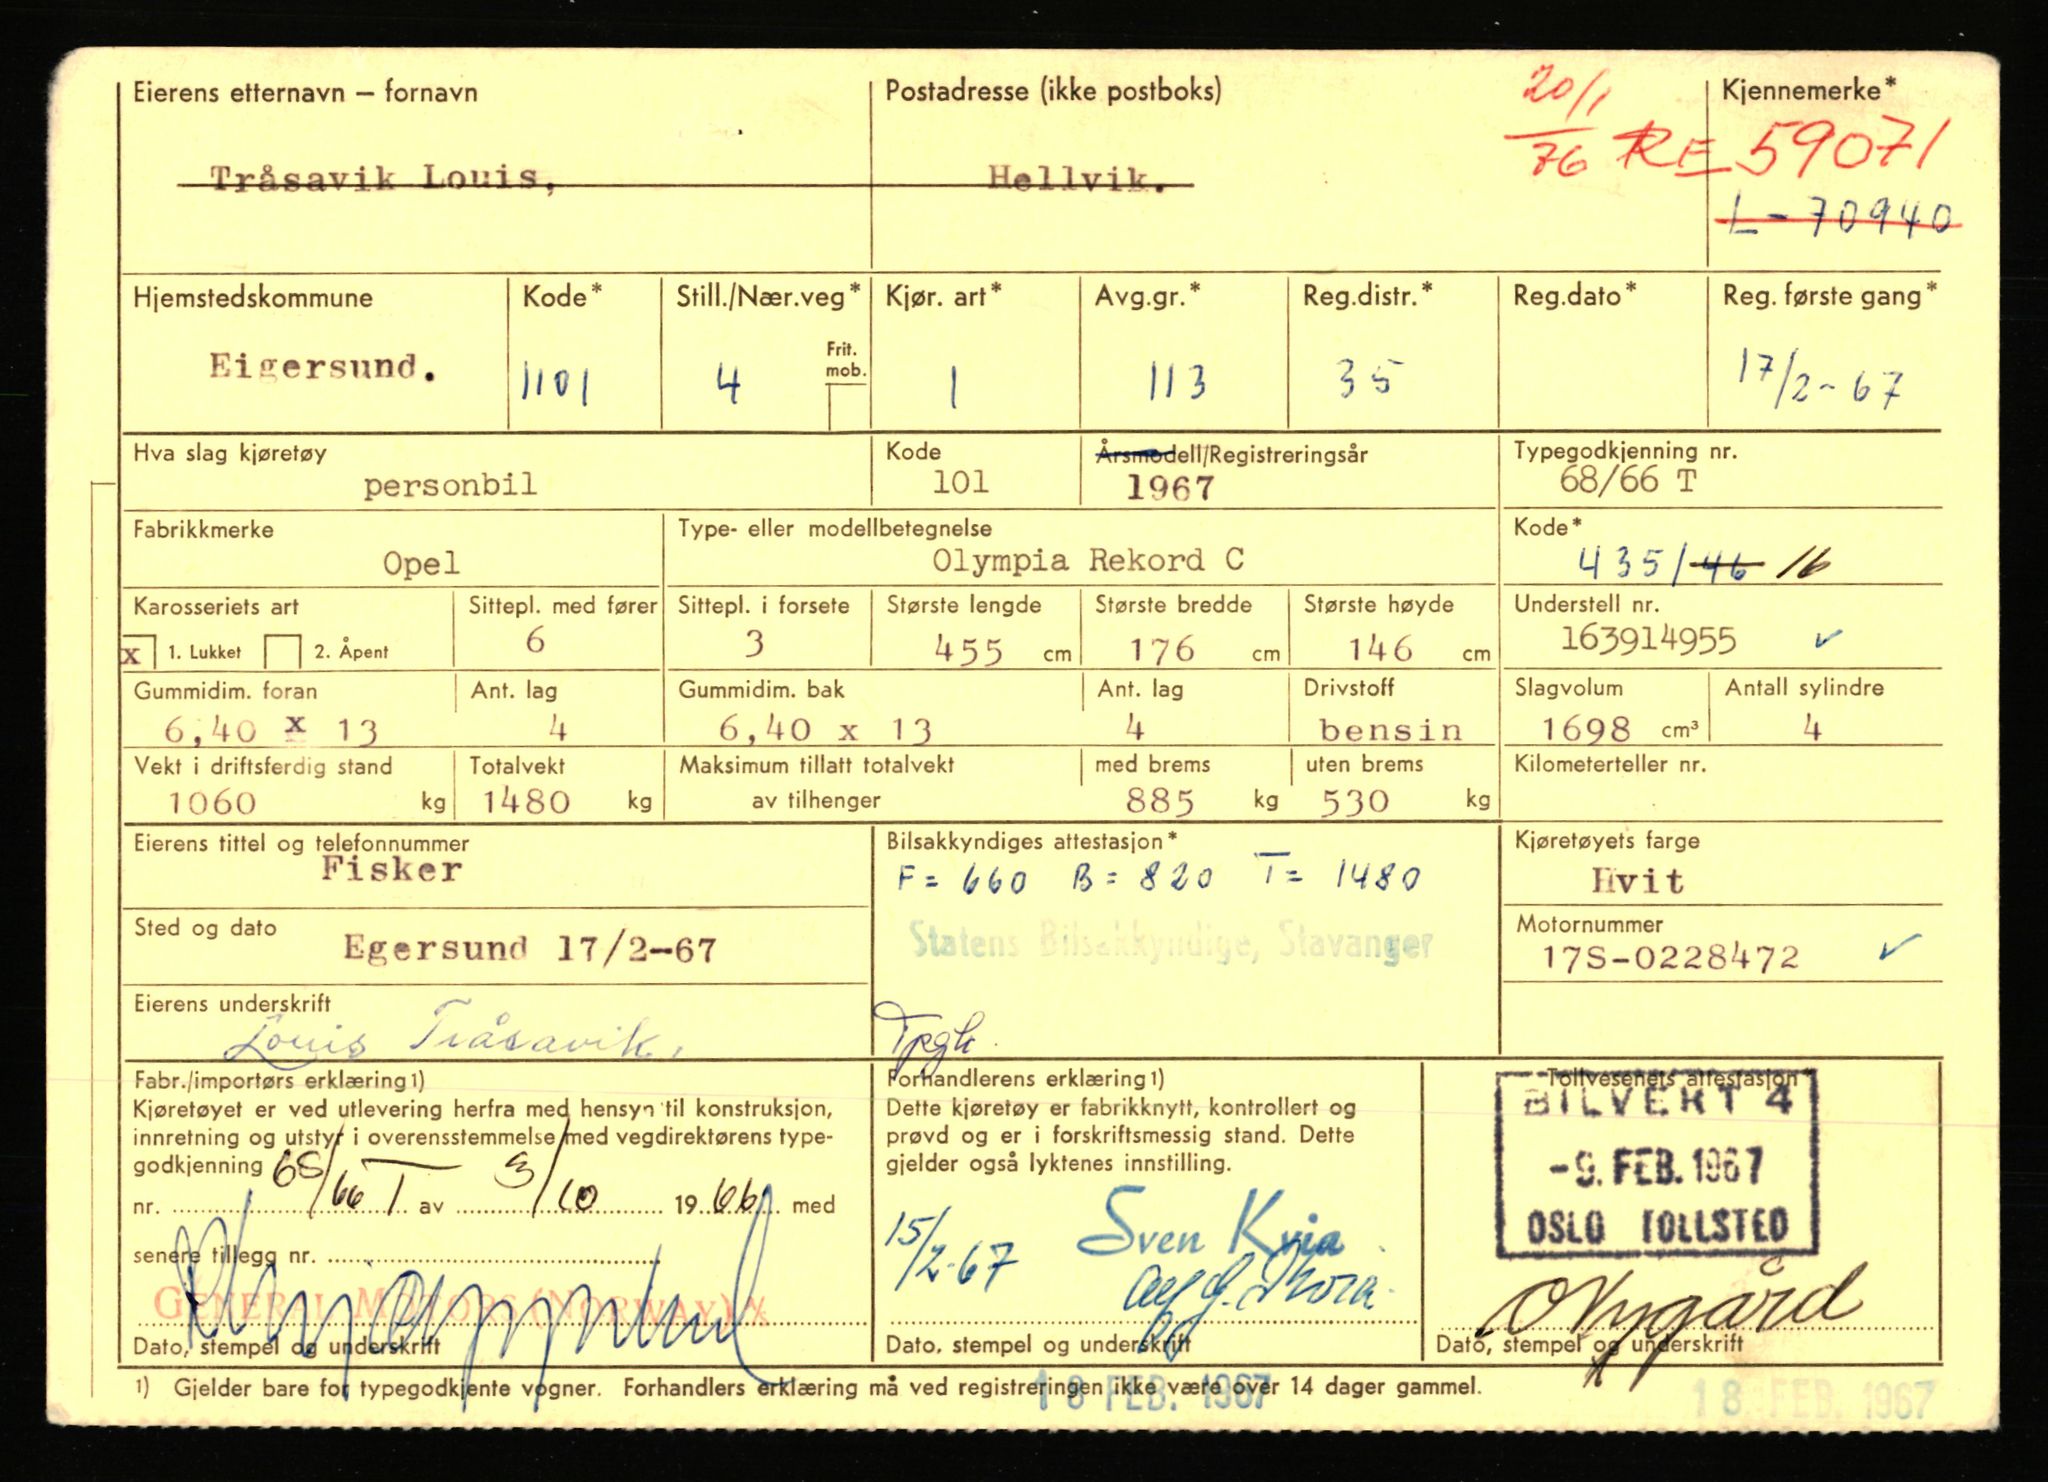 Eierens etternavn – fornavn
Tråsavik Louis,
Postadresse (ikke postboks)
Hellvik.
20/1
76
RE 59071
Kjennemerke*
L-70940
Hjemstedskommune
Eigersund.
Kode*
1101
Still./Nær.veg*
4
Frit.
mob.
Kjør. art*
1
Avg.gr.*
113
Reg.distr.*
35
Reg.dato*
Reg. første gang*
17/2-67
Hva slag kjøretøy
personbil
Kode
101
Årsmodell/Registreringsår
1967
Typegodkjenning nr.
68/66 T
Fabrikkmerke
Opel
Type- eller modellbetegnelse
Olympia Rekord C
Kode*
435/46 16
Karosseriets art
x 1. Lukket 2. Åpent
Sittepl. med fører
6
Sittepl. i forsete
3
Største lengde
455 cm
Største bredde
176 cm
Største høyde
146 cm
Understell nr.
163914955 ✓
Gummidim. foran
6,40 x 13
Ant. lag
4
Gummidim. bak
6,40 x 13
Ant. lag
4
Drivstoff
bensin
Slagvolum
1698 cm³
Antall sylindre
4
Vekt i driftsferdig stand
1060 kg
Totalvekt
1480 kg
Maksimum tillatt totalvekt
av tilhenger
med brems
885 kg
uten brems
530 kg
Kilometerteller nr.
Eierens tittel og telefonnummer
Fisker
Bilsakkyndiges attestasjon*
F = 660 B = 820 T = 1480
Statens Bilsakkyndige, Stavanger
Tpgk.
Kjøretøyets farge
Hvit
Sted og dato
Egersund 17/2-67
Motornummer
17S-0228472 ✓
Eierens underskrift
Louis Tråsavik.
Fabr./importørs erklæring 1)
Kjøretøyet er ved utlevering herfra med hensyn til konstruksjon,
innretning og utstyr i overensstemmelse med vegdirektørens type-
godkjenning
nr. 68/66 T av 3/10 1966 med
senere tillegg nr.
GENERAL MOTORS (NORWAY) A/S
Dato, stempel og underskrift
Forhandlerens erklæring 1)
Dette kjøretøy er fabrikknytt, kontrollert og
prøvd og er i forskriftsmessig stand. Dette
gjelder også lyktenes innstilling.
15/2-67
Sven Kvia
Dato, stempel og underskrift
Tollvesenets attestasjon*
BILVEKT 4
-9. FEB. 1967
OSLO TOLLSTED
Nygård
Dato, stempel og underskrift
1) Gjelder bare for typegodkjente vogner. Forhandlers erklæring må ved registreringen ikke være over 14 dager gammel.
18 FEB. 1967
18. FEB. 1967